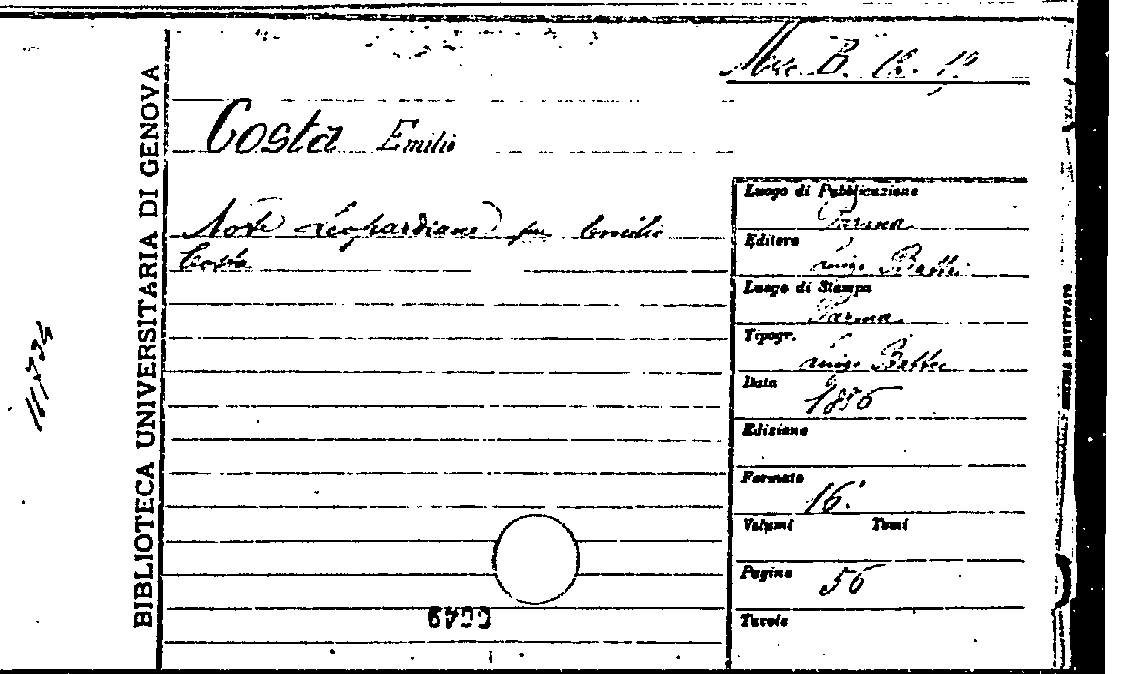 Misc. B. 12. 1?
BIBLIOTECA UNIVERSITARIA DI GENOVA
Costa Emilio
Note Leopardiane per Emilio
Costa
Luogo di Pubblicazione
Parma
Editore
Luigi Battei
Luogo di Stampa
Parma
Tipogr.
Luigi Battei
Data
1886
Edizione
Formato
16.
Volumi Tomi
Pagine
56
Tavole